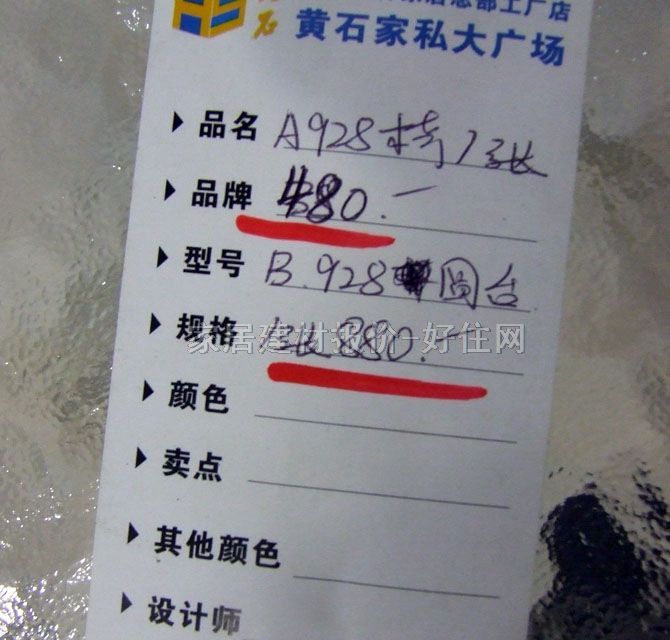 总部工厂店
黄石家私大广场
品名 A928椅1张
品牌 480.一
型号 B.928 圆台
规格 880.一
家居建材报价-好住网
颜色
卖点
其他颜色
设计师